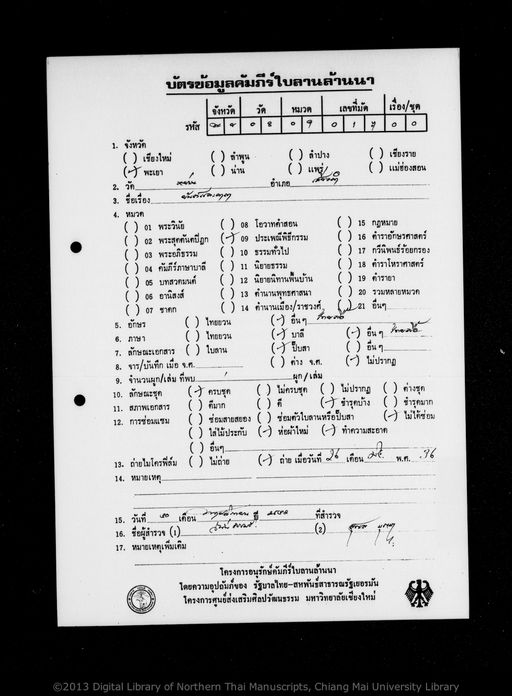 บัตรข้อมูลคัมภีร์ใบลานล้านนา
จังหวัด วัด หมวด เลขที่มัด เรื่อง/ชุด
รหัส ๐ ๘ ๐ ๙ ๐ ๑ ๐ ๐
1. จังหวัด
( ) เชียงใหม่ ( ) ลำพูน ( ) ลำปาง ( ) เชียงราย
(✓) พะเยา ( ) น่าน ( ) แพร่ ( ) แม่ฮ่องสอน
2. วัด อำเภอ
3. ชื่อเรื่อง
4. หมวด
( ) 01 พระวินัย ( ) 08 โอวาทคำสอน ( ) 15 กฎหมาย
( ) 02 พระสุตตันตปิฎก (✓) 09 ประเพณีพิธีกรรม ( ) 16 ตำราอักษรศาสตร์
( ) 03 พระอภิธรรม ( ) 10 ธรรมทั่วไป ( ) 17 กวีนิพนธ์ร้อยกรอง
( ) 04 คัมภีร์ภาษาบาลี ( ) 11 นิยายธรรม ( ) 18 ตำราโหราศาสตร์
( ) 05 บทสวดมนต์ ( ) 12 นิยายนิทานพื้นบ้าน ( ) 19 ตำรายา
( ) 06 อานิสงส์ ( ) 13 ตำนานพุทธศาสนา ( ) 20 รวมหลายหมวด
( ) 07 ชาดก ( ) 14 ตำนานเมือง/ราชวงศ์ ( ) 21 อื่นๆ
5. อักษร ( ) ไทยยวน (✓) อื่นๆ ไทยลื้อ
6. ภาษา ( ) ไทยยวน (✓) บาลี (✓) อื่นๆ ไทยลื้อ
7. ลักษณะเอกสาร ( ) ใบลาน (✓) ปั๊บสา ( ) อื่นๆ
8. จาร/บันทึก เมื่อ จ.ศ. ( ) ค่าง จ.ศ. (✓) ไม่ปรากฏ
9. จำนวนผูก/เล่ม ที่พบ ผูก/เล่ม
10. ลักษณะชุด (✓) ครบชุด ( ) ไม่ครบชุด ( ) ไม่ปรากฏ ( ) ต่างชุด
11. สภาพเอกสาร ( ) ดีมาก ( ) ดี (✓) ชำรุดบ้าง ( ) ชำรุดมาก
12. การซ่อมแซม ( ) ซ่อมสายสยอง ( ) ซ่อมตัวใบลานหรือปั๊บสา (✓) ไม่ได้ซ่อม
( ) ใส่ไม้ประกับ (✓) ห่อผ้าใหม่ (✓) ทำความสะอาด
( ) อื่นๆ
13. ถ่ายไมโครฟิล์ม ( ) ไม่ถ่าย (✓) ถ่าย เมื่อวันที่ 26 เดือน พ.ศ. 36
14. หมายเหตุ
15. วันที่ ๓๐ เดือน ปี ที่สำรวจ
16. ชื่อผู้สำรวจ (1) (2)
17. หมายเหตุเพิ่มเติม
โครงการอนุรักษ์คัมภีร์ใบลานล้านนา
โดยความอุปถัมภ์ของ รัฐบาลไทย-สหพันธ์สาธารณรัฐเยอรมัน
โครงการศูนย์ส่งเสริมศิลปวัฒนธรรม มหาวิทยาลัยเชียงใหม่
©2013 Digital Library of Northern Thai Manuscripts, Chiang Mai University Library